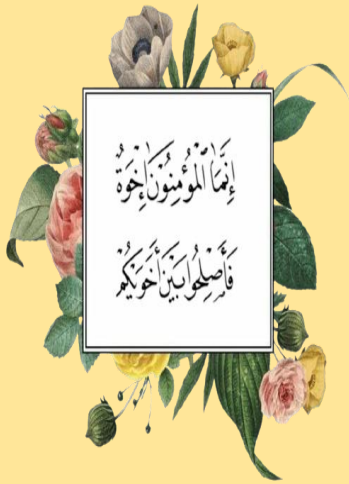 إِنَّمَا الْمُؤْمِنُونَ إِخْوَةٌ
فَأَصْلِحُوا بَيْنَ أَخَوَيْكُمْ